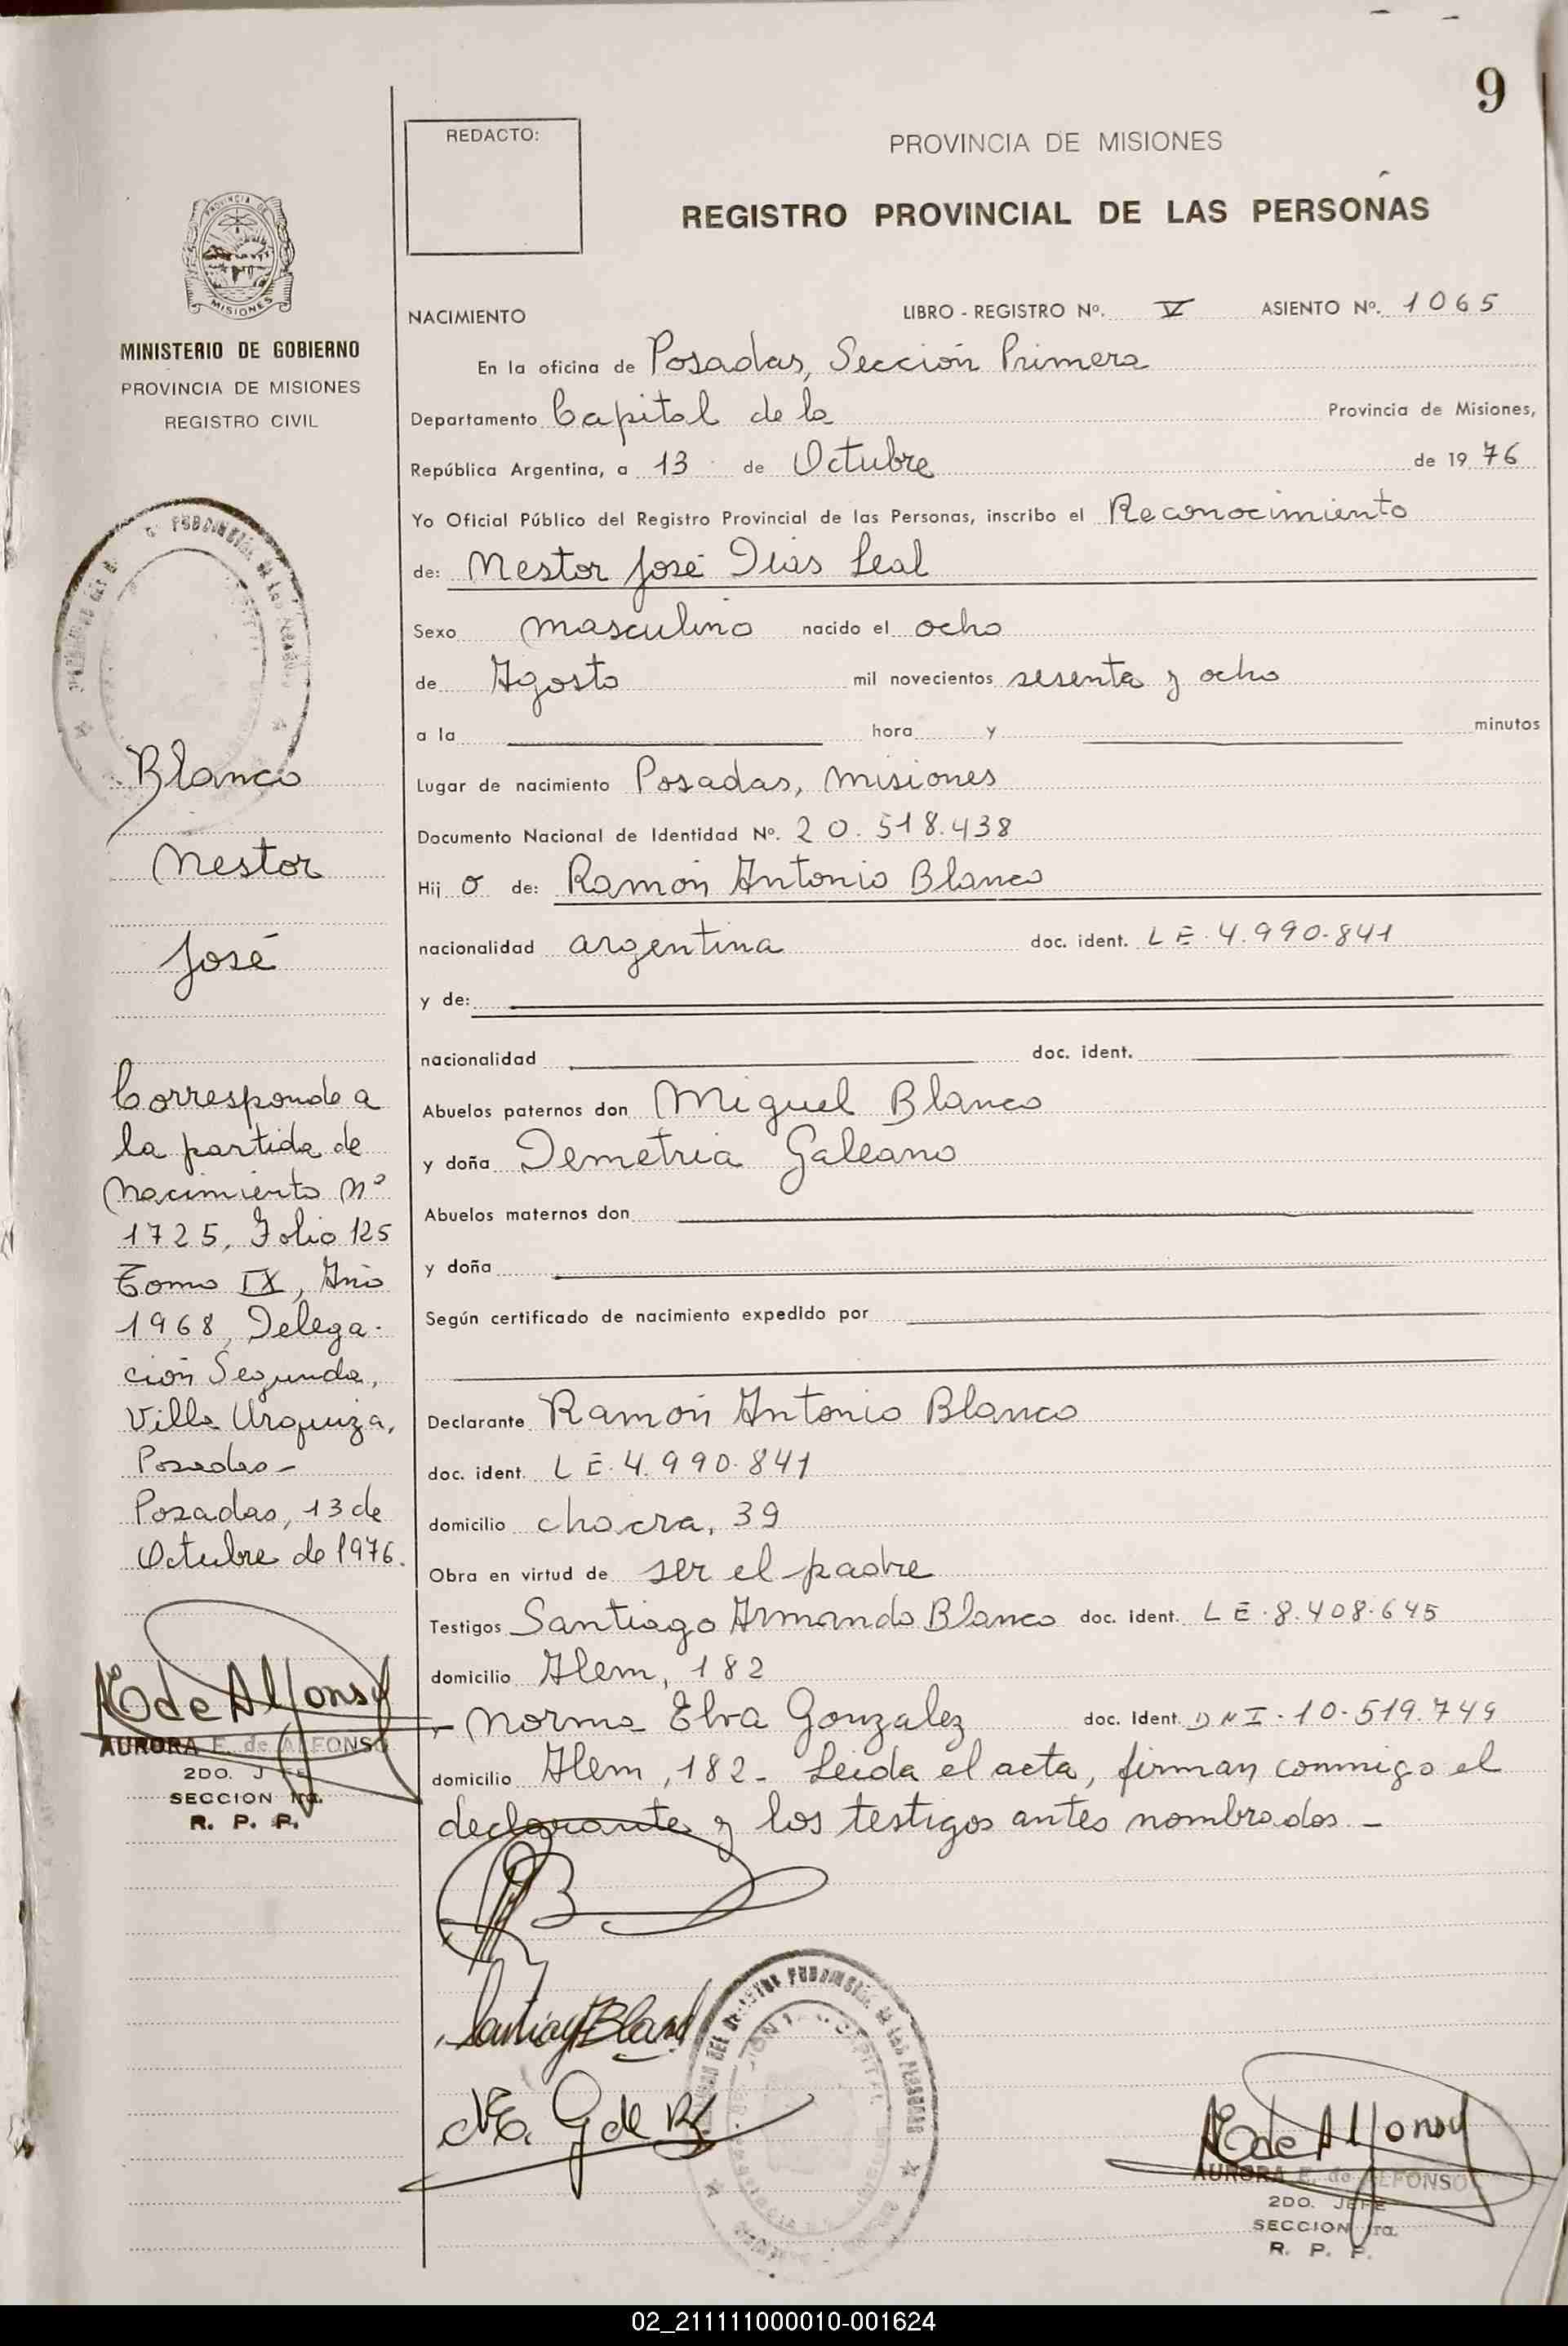 9
REDACTO:
PROVINCIA DE MISIONES
REGISTRO PROVINCIAL DE LAS PERSONAS
PROVINCIA DE
MISIONES
MINISTERIO DE GOBIERNO
PROVINCIA DE MISIONES
REGISTRO CIVIL
NACIMIENTO LIBRO - REGISTRO Nº. V ASIENTO Nº. 1065
En la oficina de Posadas, Sección Primera
Departamento Capital de la Provincia de Misiones,
República Argentina, a 13 de Octubre de 1976
Yo Oficial Público del Registro Provincial de las Personas, inscribo el Reconocimiento
de: Nestor José Dias Leal
Sexo masculino nacido el ocho
de Agosto mil novecientos sesenta y ocho
a la hora y minutos
Lugar de nacimiento Posadas, Misiones
Documento Nacional de Identidad Nº. 20.518.438
Hij o de: Ramón Antonio Blanco
nacionalidad argentina doc. ident. LE.4.990.841
y de:
nacionalidad doc. ident.
Abuelos paternos don Miguel Blanco
y doña Demetria Galeano
Abuelos maternos don
y doña
Según certificado de nacimiento expedido por
Declarante Ramón Antonio Blanco
doc. ident. LE.4.990.841
domicilio chacra, 39
Obra en virtud de ser el padre
Testigos Santiago Armando Blanco doc. ident. LE.8.408.645
domicilio Alem, 182
y Norma Elva Gonzalez doc. Ident. DNI.10.519.749
domicilio Alem, 182- Leida el acta, firman conmigo el
declarante y los testigos antes nombrados -
Blanco
Nestor
José
Corresponde a
la partida de
Nacimiento Nº
1725, Folio 125
Tomo IX, Año
1968, Delega-
ción Segunda,
Villa Urquiza,
Posadas-
Posadas, 13 de
Octubre de 1976.
AE de Alfonso
AURORA E. de ALFONSO
2DO. JEFE
SECCION 1ra.
R. P. P.
Santiago Blanco
NE. G de B
AE de Alfonso
AURORA E. de ALFONSO
2DO. JEFE
SECCION 1ra.
R. P. P.
02_211111000010-001624